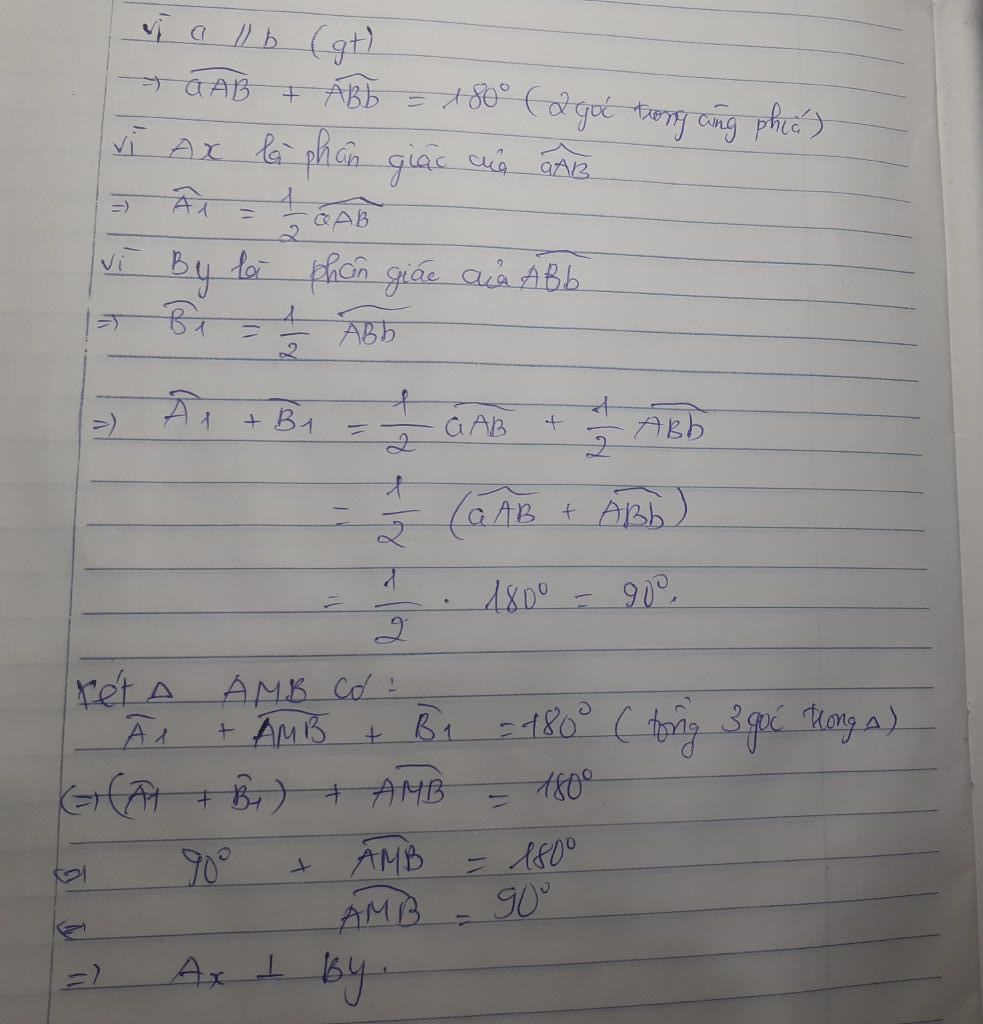 vì a // b (gt)
=> aAB + ABb = 180° (2 góc trong cùng phía)
vì Ax là phân giác của aAB
=> A1 = 1/2 aAB
vì By là phân giác của ABb
=> B1 = 1/2 ABb
=> A1 + B1 = 1/2 aAB + 1/2 ABb
= 1/2 (aAB + ABb)
= 1/2 . 180° = 90°.
xét Δ AMB có :
A1 + AMB + B1 = 180° (tổng 3 góc trong Δ)
<=> (A1 + B1) + AMB = 180°
<=> 90° + AMB = 180°
<= AMB = 90°
=> Ax ⊥ By.